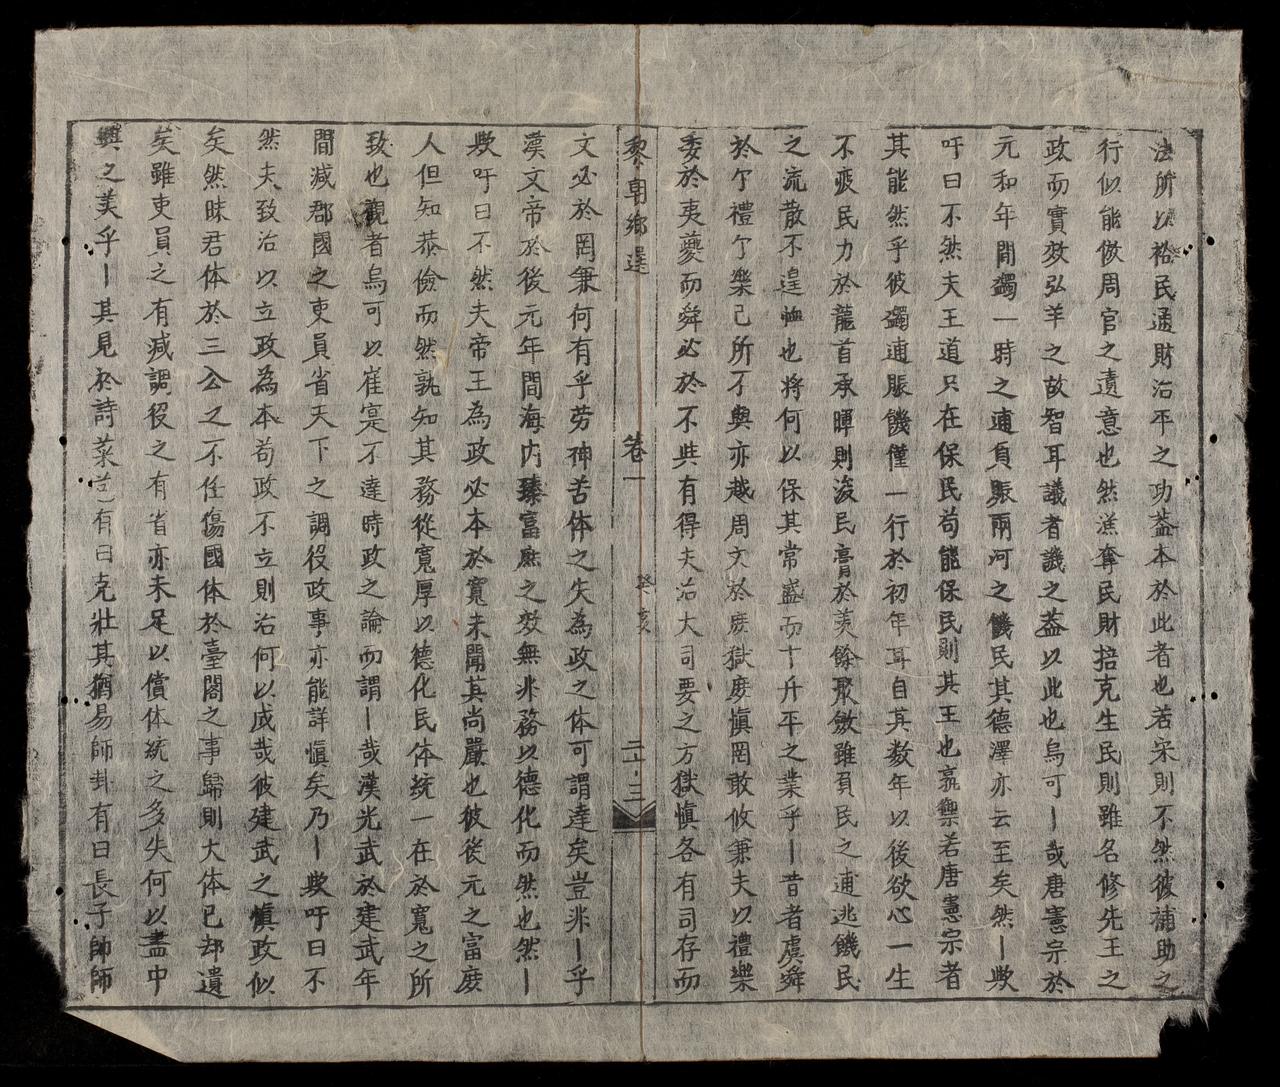 法所以裕民通財治平之功葢本於此者也若宋則不然彼補助之
行似能倣周官之遺意也然漁奪民財掊克生民則雖名修先王之
政而實效弘羊之故智耳議者譏之葢以此也烏可〡哉唐憲宗於
元和年間蠲一時之逋負賑兩河之饑民其德澤亦云至矣然〡欤
吁曰不然夫王道只在保民苟能保民則其王也孰禦若唐憲宗者
其能然乎彼蠲逋賑饑僅一行於初年耳自其数年以後欲心一生
不疲民力於龍首承暉則浚民膏於羡餘聚斂雖頁民之逋逃饑民
之流散不遑恤也将何以保其常盛而十升平之業乎〡昔者虞舜
於尒禮尒樂己所不與亦越周文於庶獄庶慎罔敢攸兼夫以禮樂
委於夷夔而舜必於不與有得夫治大司要之方獄慎各有司存而
黎朝鄉選
卷一
癸亥
二·三
文必於罔兼何有乎労神苦体之失為政之体可謂達矣豈非〡乎
漢文帝於後元年間海内臻富庶之效無非務以德化而然也然〡
欤吁曰不然夫帝王為政必本於寬未聞其尚嚴也彼後元之富庶
人但知恭儉而然孰知其務從寬厚以德化民体統一在於寬之所
致也觀者烏可以崔寔不達時政之論而謂〡哉漢光武於建武年
間減郡國之吏員省天下之調役政事亦能詳慎矣乃〡欤吁曰不
然夫致治以立政為本苟政不立則治何以成哉彼建武之慎政似
矣然昧君体於三公之不任傷國体於臺閣之事歸則大体已却遺
矣雖吏員之有減調役之有省亦未足以償体統之多失何以盡中
興之美乎〡其見於詩菜芑有曰克壯其猶易師卦有曰長子帥師